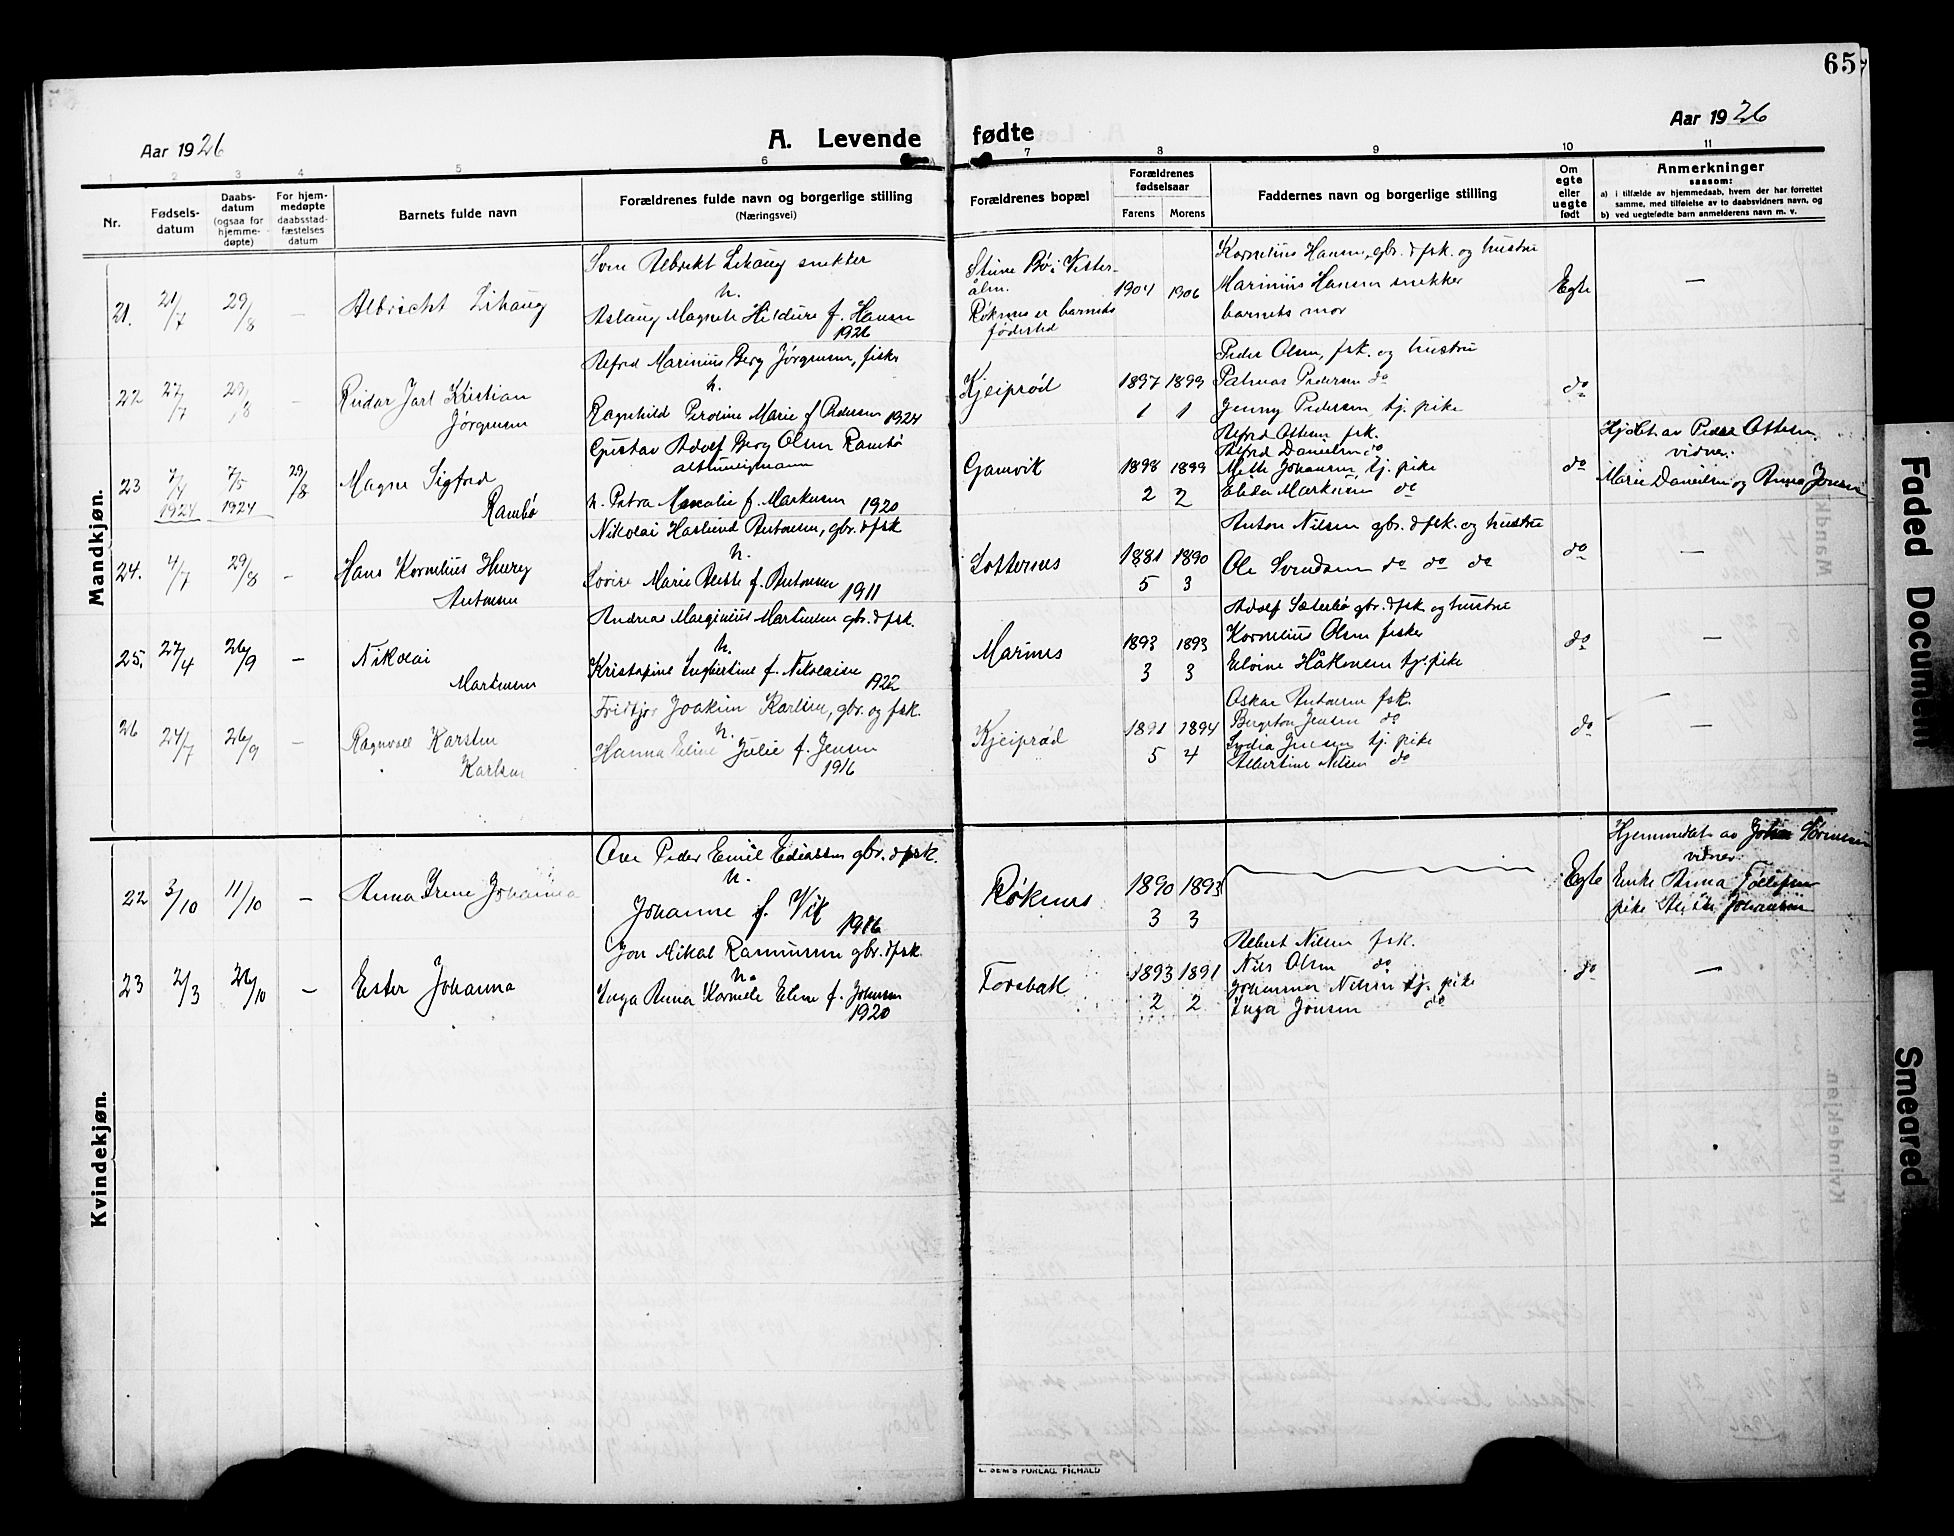 65
Aar 1926
A. Levende
fødte
Aar 1926
1 2 3 4 5 6 7 8 9 10 11
Nr.
Fødsels-
datum
Daabs-
datum
(ogsaa for
hjemme-
døpte)
For hjem-
medøpte
daabsstad-
fæstelses
datum
Barnets fulde navn
Forældrenes fulde navn og borgerlige stilling
(Næringsvei)
Forældrenes bopæl
Forældrenes
fødselsaar
Farens Morens
Faddernes navn og borgerlige stilling
Om
egte
eller
uegte
født
Anmerkninger
saasom:
a) i tilfælde av hjemmedaab, hvem der har forrettet
samme, med tilføielse av to daabsvidners navn, og
b) ved uegtefødte barn anmelderens navn m. v.
Mandkjøn.
21. 21/7 29/8 –
Albrecht Lihaug
Albrekt Lihaug snekker
h.
Aslaug Hildure f. Hansen
1926
Stune Bø i Vester-
ålen.
Røknes er barnets
fødested
1904 1906
Kornelius Hansen, gbr. & fsk. og hustru
Marinius Hansen snekker
barnets mor
Egte
—
22 27/7 29/8 –
Reidar Jarl Kristian
Jørgensen
Alfred Marinius Berg Jørgensen, fisker
h.
Ragnhild Perdine Marie f. Pedersen 1924
Kjeiprød
1897 1899
1 1
Peder Olsen, fsk. og hustru
Palmar Pedersen do
Jenny Pedersen tj. pike
do
23 7/4 1924 7/5 1924 29/8
Magne Sigfred
Rambø
Gustav Adolf Berg Olsen Rambø
h. Petra f. Markusen 1920
Gamvik
1898 1899
2 2
Alfred Ottesen fsk.
Alfred Danielsen do
Mette Johansen tj. pike
Elida Markusen do
do
Hjdøbt av Peder Ottesen
vidner:
Marie Danielsen og Anna Jensen
24. 4/7 29/8 –
Hans Kornelius Henry
Antonsen
Nikolai Haslund Antonsen, gbr. & fsk
h.
Lovise Marie f. Antonsen 1911
1881 1890
5 3
Anton Nilsen gbr. & fsk. og hustru
Ole Svendsen do do do
do
—
25. 27/4 26/9 –
Nikolai
Martinsen
Andreas Marginius Martinsen gbr. & fsk.
h.
Kristofine Ingbertine f. Nikolaisen
1922
Marines
1893 1893
3 3
Adolf Sæterbø gbr. & fsk. og hustru
Kornelius Olsen fisker
Elvine Håkonsen tj. pike
do
—
26 24/7 26/9 –
Ragnvall Karsten
Karlsen
Fridtjov Joakim Karlsen, gbr. og fsk.
h.
Hanna Eline Julie f. Jensen
1916
Kjeiprød
1891 1894
5 4
Oskar Antonsen fsk.
Bergton Jensen do
Lydia Jensen tj. pike
Albertine Nilsen do
do
—
Kvindekjøn.
22 3/10 11/10 –
Anna Irene Johanna
Ove Peder Emil Ediassen gbr. & fsk.
h.
Johanne f. Vik
1916
Røknes
1890 1893
3 3
Egte
Hjemmedøbt av Johan Sørensen
vidner:
Enke Anna Tollefsen
pike Johansen
23 2/3 26/10 –
Ester Johanna
Jon Mikal Rasmussen gbr. & fsk.
h.
Inga Anna Kornele Eline f. Johnsen
1920
Forsbak
1893 1891
2 2
Albert Nilsen fsk.
Nils Olsen do
Johanna Nilsen tj. pike
Inga Jonsen do
do
—
E. SEM'S FORLAG. FR.HALD
Faded Document
Smeared